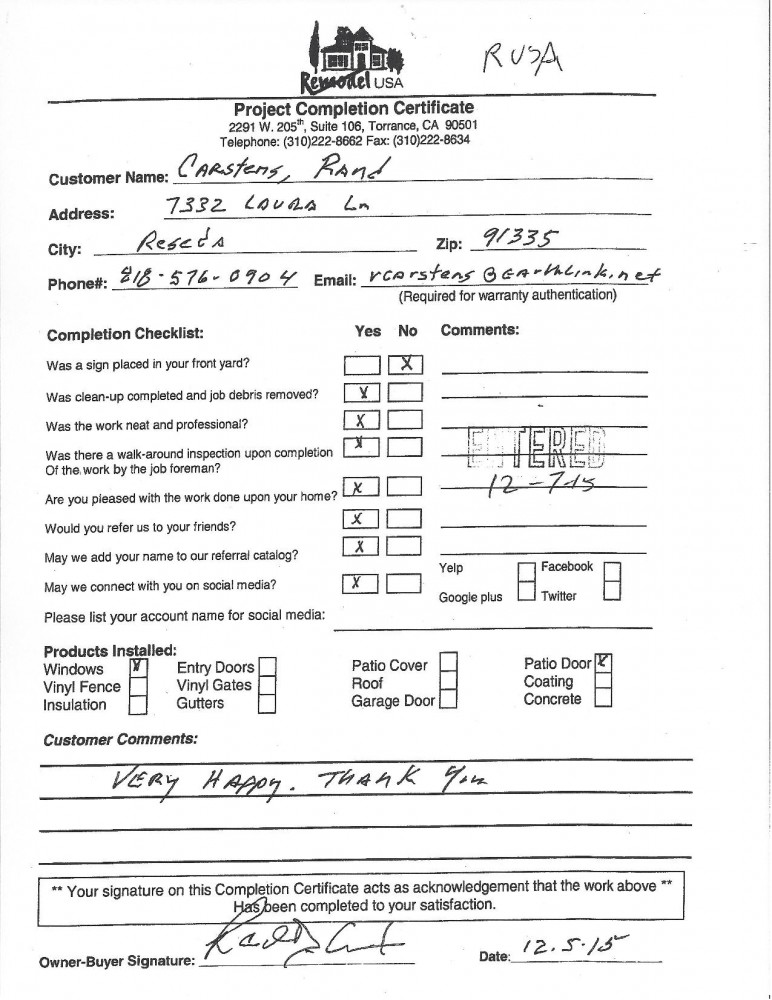 RUSA
Remodel USA
Project Completion Certificate
2291 W. 205th, Suite 106, Torrance, CA 90501
Telephone: (310)222-8662 Fax: (310)222-8634
Customer Name: Carstens, Rand
Address: 7332 Laura Ln
City: Reseda Zip: 91335
Phone#: 818-576-0904 Email: rcarstens@earthlink.net
(Required for warranty authentication)
Completion Checklist: Yes No Comments:
Was a sign placed in your front yard? X
Was clean-up completed and job debris removed? X
Was the work neat and professional? X
Was there a walk-around inspection upon completion X
Of the work by the job foreman?
ENTERED
Are you pleased with the work done upon your home? X 12-7-15
Would you refer us to your friends? X
May we add your name to our referral catalog? X
Yelp Facebook
May we connect with you on social media? X
Google plus Twitter
Please list your account name for social media:
Products Installed:
Windows X Entry Doors Patio Cover Patio Door X
Vinyl Fence Vinyl Gates Roof Coating
Insulation Gutters Garage Door Concrete
Customer Comments:
Very Happy. Thank You
** Your signature on this Completion Certificate acts as acknowledgement that the work above **
Has been completed to your satisfaction.
Owner-Buyer Signature: Date: 12.5.15